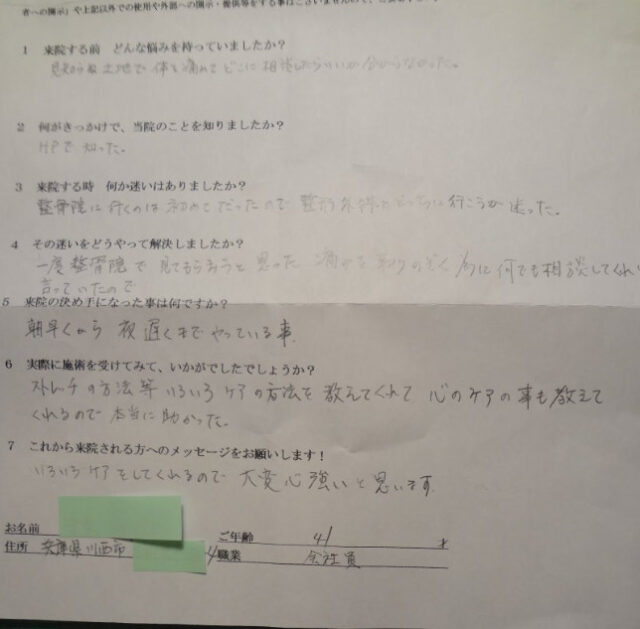 者への開示」や上記以外での使用や外部への開示・提供等をする事はございませんので、
1 来院する前 どんな悩みを持っていましたか?
土地で体を痛めてどこに相談したらいいか分からなかった。
2 何がきっかけで、当院のことを知りましたか?
HPで知った。
3 来院する時 何か迷いはありましたか?
整骨院に行くのは初めてだったので整形外科とどっちに行こうか迷った。
4 その迷いをどうやって解決しましたか?
一度整骨院で見てもらおうと思った 痛みを取りのぞく為に何でも相談してくれ
言っていたので
5 来院の決め手になった事は何ですか?
朝早くから夜遅くまでやっている事.
6 実際に施術を受けてみて、いかがでしたでしょうか?
ストレッチの方法等いろいろケアの方法を教えてくれて心のケアの事も教えて
くれるので本当に助かった。
7 これから来院される方へのメッセージをお願いします!
いろいろケアをしてくれるので大変心強いと思います.
お名前
ご年齢 41 才
住所 兵庫県川西市
職業 会社員